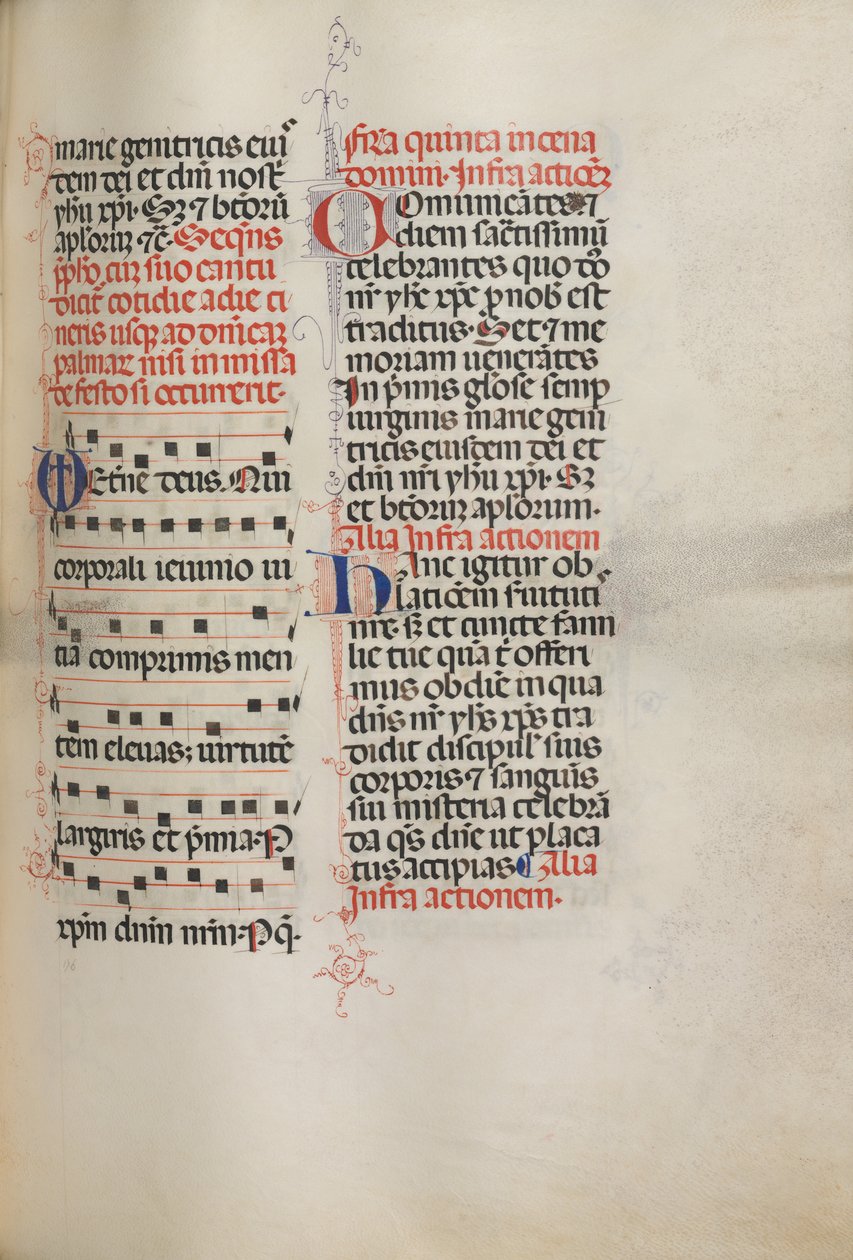 marie genitricis eiuſ
dem dei et dñi noſt̃
yhũ xp̃i. Sʒ ⁊ bt̃orũ
apl̃oruʒ ⁊c̃. Seqñs
p̃ſbo cuʒ ſuo cantu
dicit̃ cotidie a die ci
neris uſqʒ ad dñicaʒ
palmaʒ niſi in miſſa
de feſto ſi occurrerit.
Et̃ne deus. Qui
corporali ieiunio ui
tia comprimis men
tem eleuas; uirtutẽ
largiris et p̃mia. P
xp̃m dñm nr̃m. P q̃.
96
Fr̃ia quinta in cena
domini. Infra actiõeʒ
COmunicãtes ⁊
diem ſac̃tiſſimũ
celebrantes quo dõ
nr̃ yħc xp̃c ꝓ nob̃ eſt
traditus. Set ⁊ me
moriam uenerãtes
In p̃mis gl̃oſe ſemp
uirginis marie geni
tricis eiuſdem dei et
dñi nr̃i yhũ xp̃i. Sʒ
et bt̃oruʒ apl̃orum.
Alia Infra actionem
HAnc igitur ob
latiõem ſuituti
nr̃e. ſʒ et cuncte fami
lie tue quã t̃ offeri
mus ob diẽ in qua
dñs nr̃ yħs xp̃s tra
didit diſcipul̃ ſuis
corporis ⁊ ſanguĩs
ſui miſteria celebrã
da q̃s dñe ut placa
tus accipias Alia
Infra actionem.